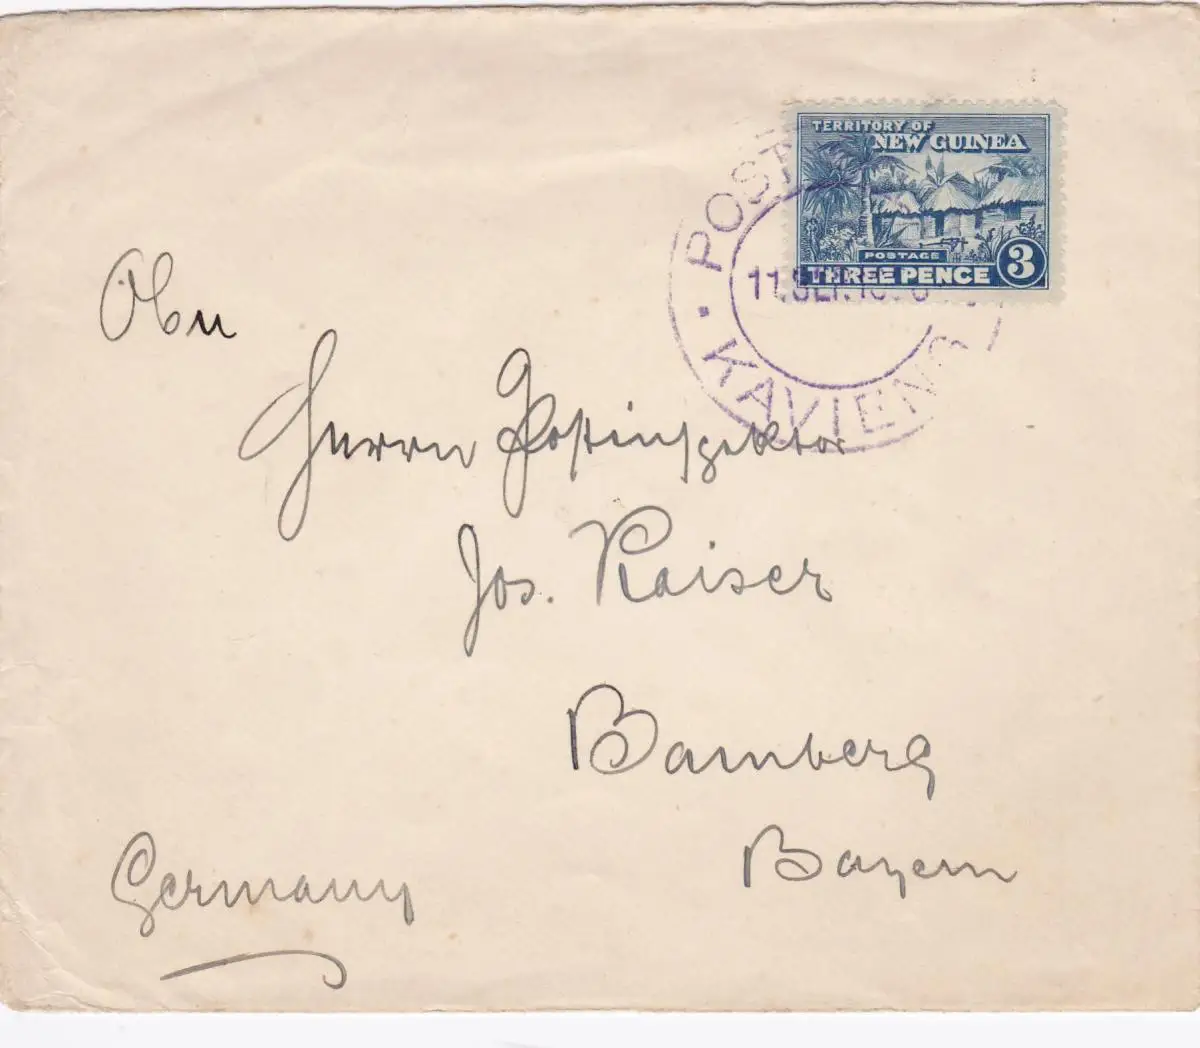 TERRITORY OF
NEW GUINEA
POSTAGE
THREE PENCE 3
POST
11.SEP.19
KAVIENG
An
Herrn Postinspektor
Jos. Kaiser
Bamberg
Bayern
Germany